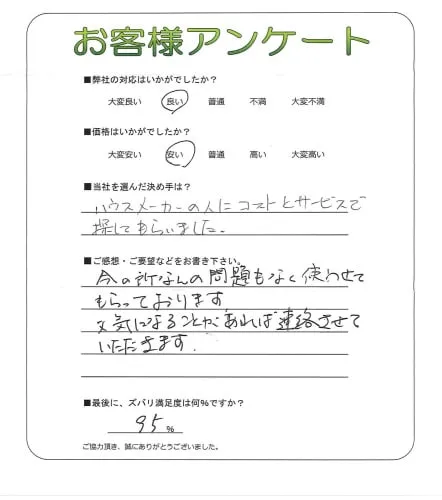 お客様アンケート
■弊社の対応はいかがでしたか?
大変良い 良い 普通 不満 大変不満
■価格はいかがでしたか?
大変安い 安い 普通 高い 大変高い
■当社を選んだ決め手は?
ハウスメーカーの人にコストとサービスで
探してもらいました。
■ご感想・ご要望などをお書き下さい。
今の所なんの問題もなく使わせて
もらっております。
又気になることがあれば連絡させて
いただきます.
■最後に、ズバリ満足度は何%ですか?
95%
ご協力頂き、誠にありがとうございました。